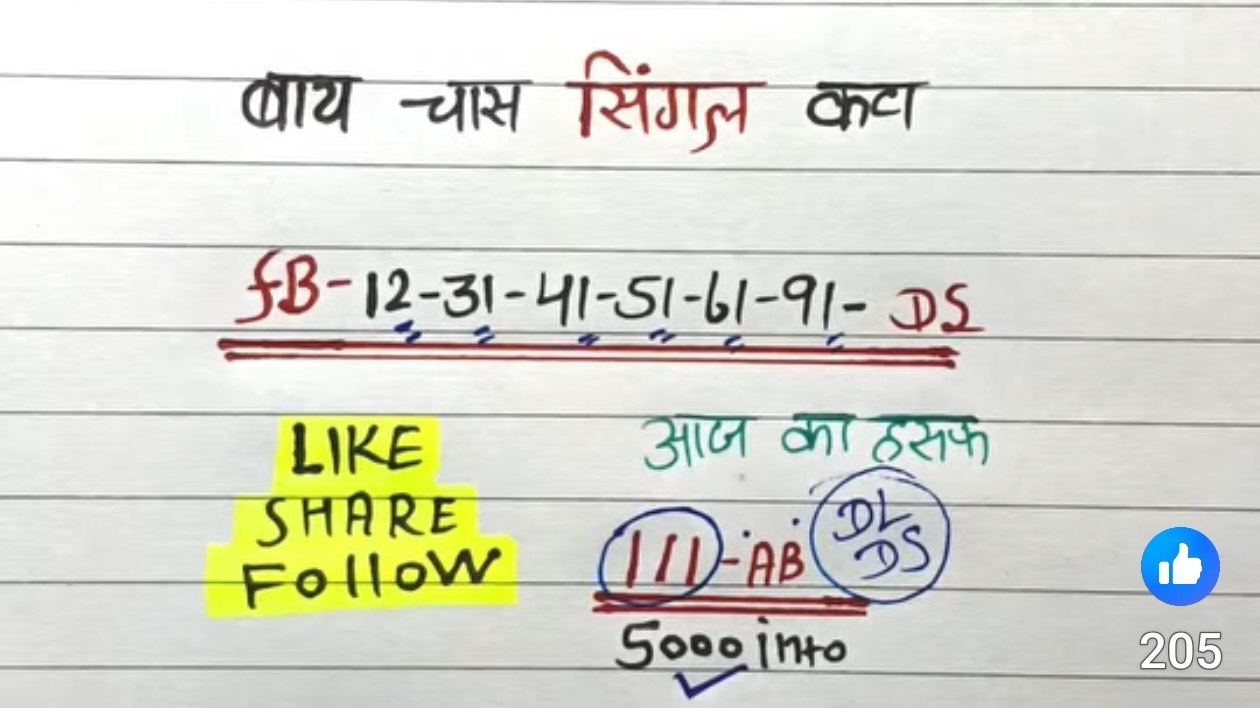 बाय चास सिंगल कटा
fB-12-31-41-51-61-91- DS
LIKE
SHARE
FOLLOW
आज का हसफ
111-AB
DL
DS
5000 into
205